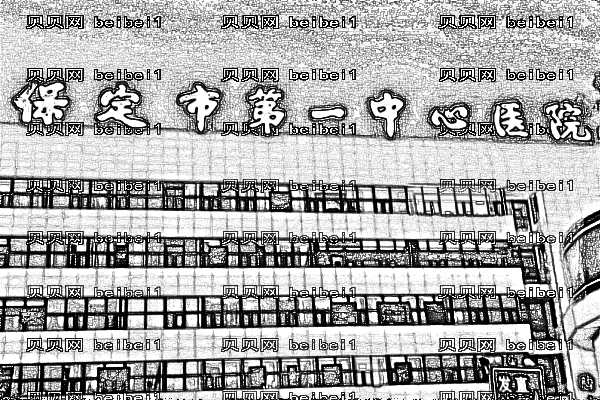 贝贝网 beibei1 贝贝网 beibei1 贝贝网 beibei1
贝贝网 beibei1 贝贝网 beibei1 贝贝网 beibei1
保定市第一中心医院
贝贝网 beibei1 贝贝网 beibei1 贝贝网 beibei1
贝贝网 beibei1 贝贝网 beibei1 贝贝网 beibei1
贝贝网 beibei1 贝贝网 beibei1 贝贝网 beibei1
贝贝网 beibei1 贝贝网 beibei1 贝贝网 beibei1
贝贝网 beibei1 贝贝网 beibei1 贝贝网 beibei1
贝贝网 beibei1 贝贝网 beibei1 贝贝网 beibei1